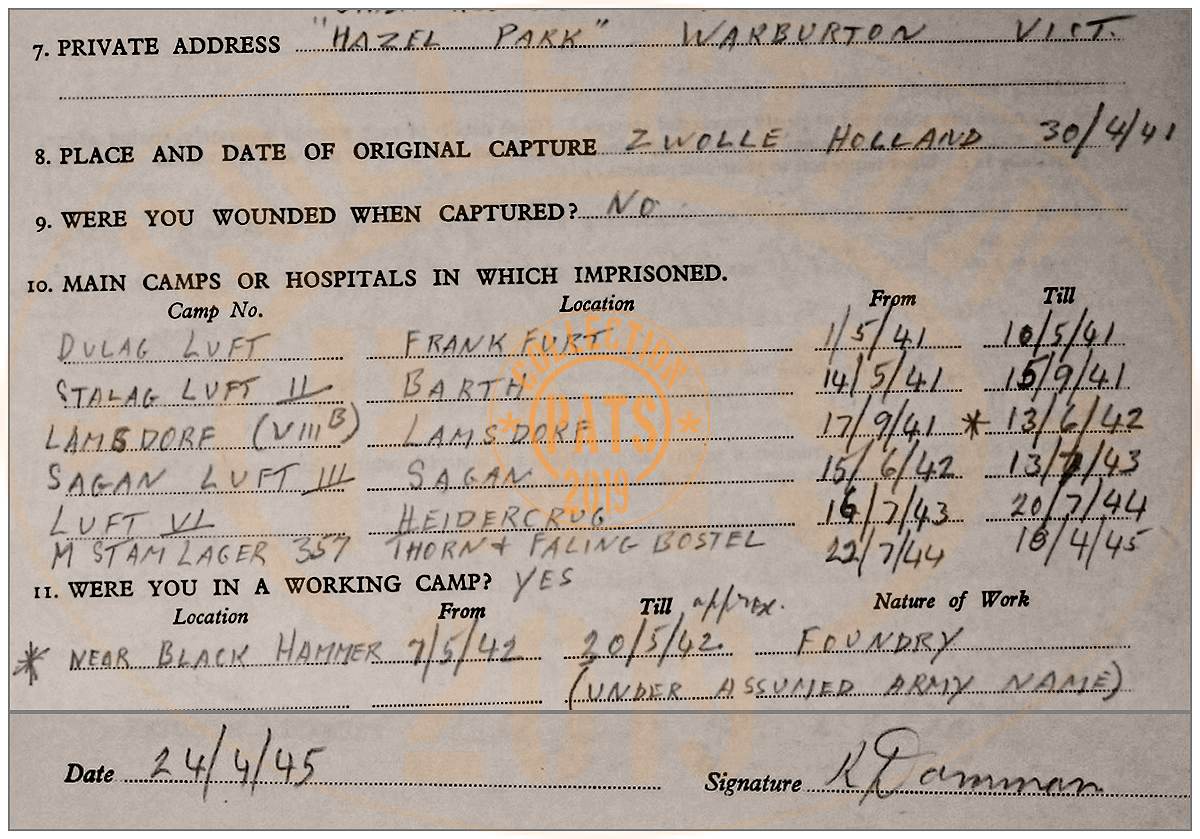 7. PRIVATE ADDRESS "HAZEL PARK" WARBURTON VICT.
8. PLACE AND DATE OF ORIGINAL CAPTURE ZWOLLE HOLLAND 30/4/41
9. WERE YOU WOUNDED WHEN CAPTURED? NO
10. MAIN CAMPS OR HOSPITALS IN WHICH IMPRISONED.
Camp No. Location From Till
DULAG LUFT FRANKFURT 1/5/41 10/5/41
STALAG LUFT II BARTH 14/5/41 15/9/41
LAMSDORF (VIII B) LAMSDORF 17/9/41 * 13/6/42
SAGAN LUFT III SAGAN 15/6/42 13/7/43
LUFT VI HEIDERCRUG 16/7/43 20/7/44
M STAM LAGER 357 THORN + FALING BOSTEL 22/7/44 18/4/45
11. WERE YOU IN A WORKING CAMP? YES
Location From Till approx. Nature of Work
* NEAR BLACK HAMMER 7/5/42 20/5/42. FOUNDRY
(UNDER ASSUMED ARMY NAME)
Date 24/4/45 Signature K Damman
COLLECTION
* PATS *
2019